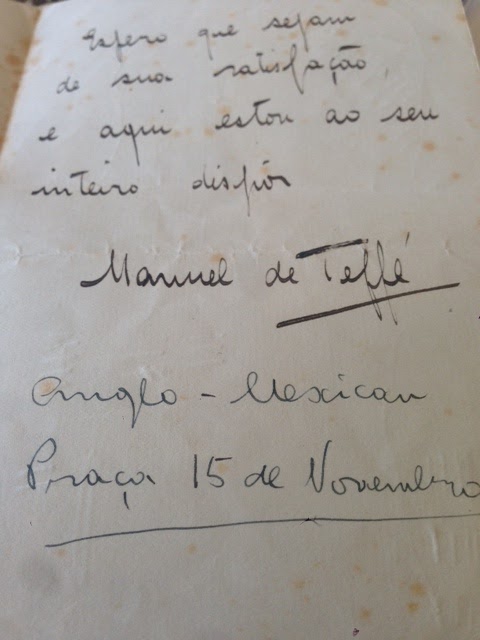 Espero que sejam
de sua satisfação,
e aqui estou ao seu
inteiro dispôr
Manuel de Teffé
Anglo - Mexican
Praça 15 de Novembro